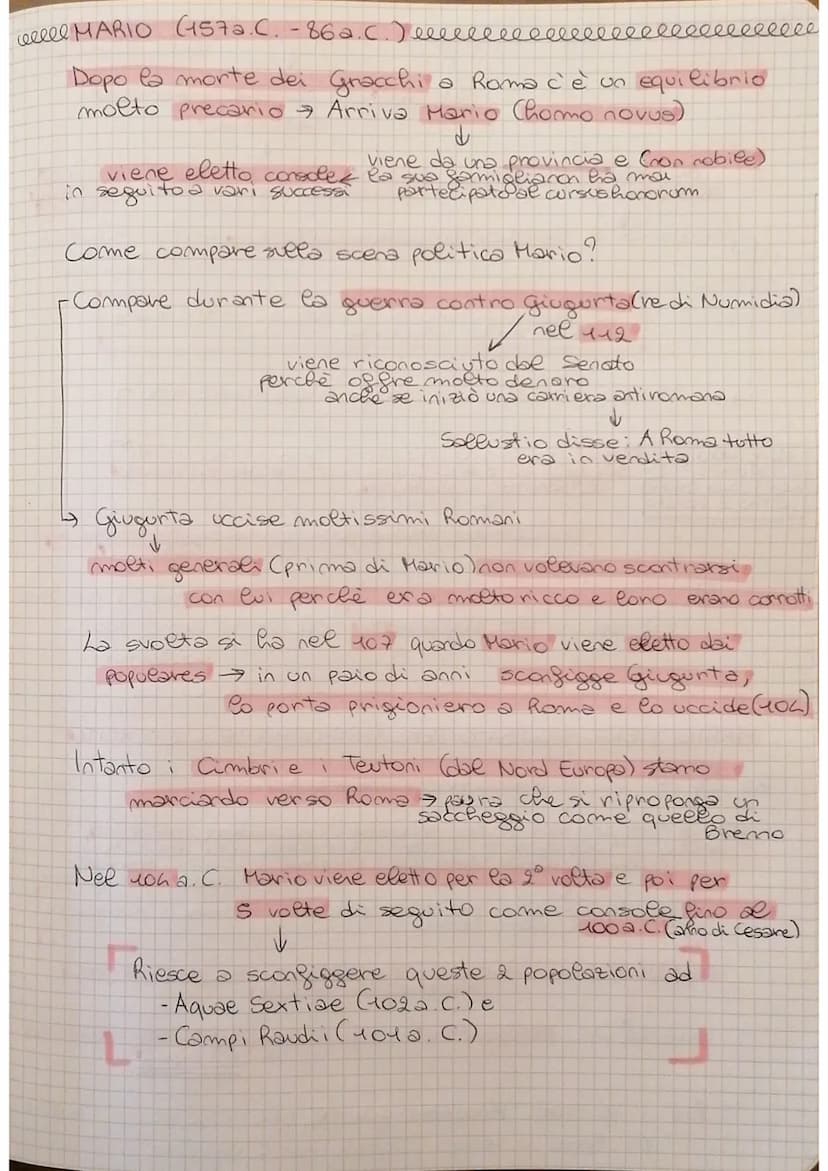 MARIO (157a.C. - 86a.C.)
Dopo la morte dei Gracchi a Roma c'è un equilibrio
molto precario → Arriva Mario (homo novus)
↓
viene da una provincia e (non nobile)
viene eletto console ← la sua famiglia non ha mai
in seguito a vari successi partecipato al cursus honorum
Come compare sulla scena politica Mario?
Compare durante la guerra contro Giugurta (re di Numidia)
nel 112
viene riconosciuto dal Senato
perchè offre molto denaro
anche se iniziò una carriera antiromana
↓
Sallustio disse: A Roma tutto
era in vendita
→ Giugurta uccise moltissimi Romani
↓
molti generali (prima di Mario) non volevano scontrarsi
con lui perchè era molto ricco e loro erano corrotti
La svolta si ha nel 107 quando Mario viene eletto dai
populares → in un paio di anni sconfigge Giugurta,
lo porta prigioniero a Roma e lo uccide (104)
Intanto i Cimbri e i Teutoni (dal Nord Europa) stanno
marciando verso Roma → paura che si riproponga un
saccheggio come quello di
Brenno
Nel 104 a.C. Mario viene eletto per la 2° volta e poi per
5 volte di seguito come console fino al
100 a.C. (anno di Cesare)
↓
Riesce a sconfiggere queste 2 popolazioni ad
- Aquae Sextiae (102a.C.) e
- Campi Raudii (101a.C.)